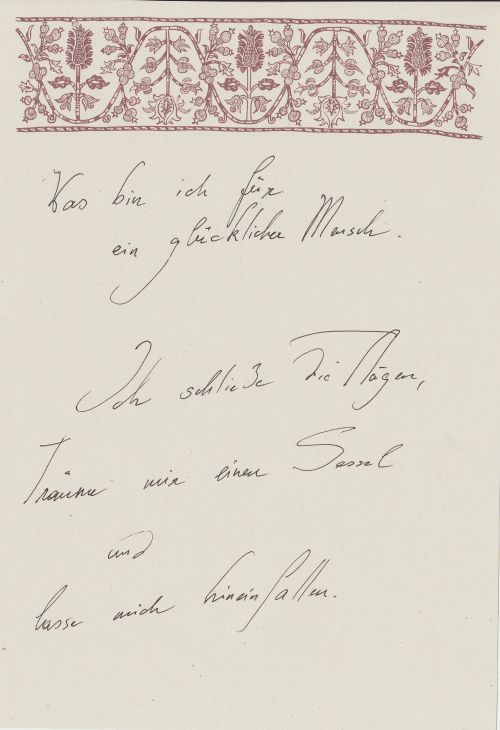 Was bin ich für
ein glücklicher Mensch.
Ich schließe die Augen,
träume mir einen Sessel
und
lasse mich hineinfallen.